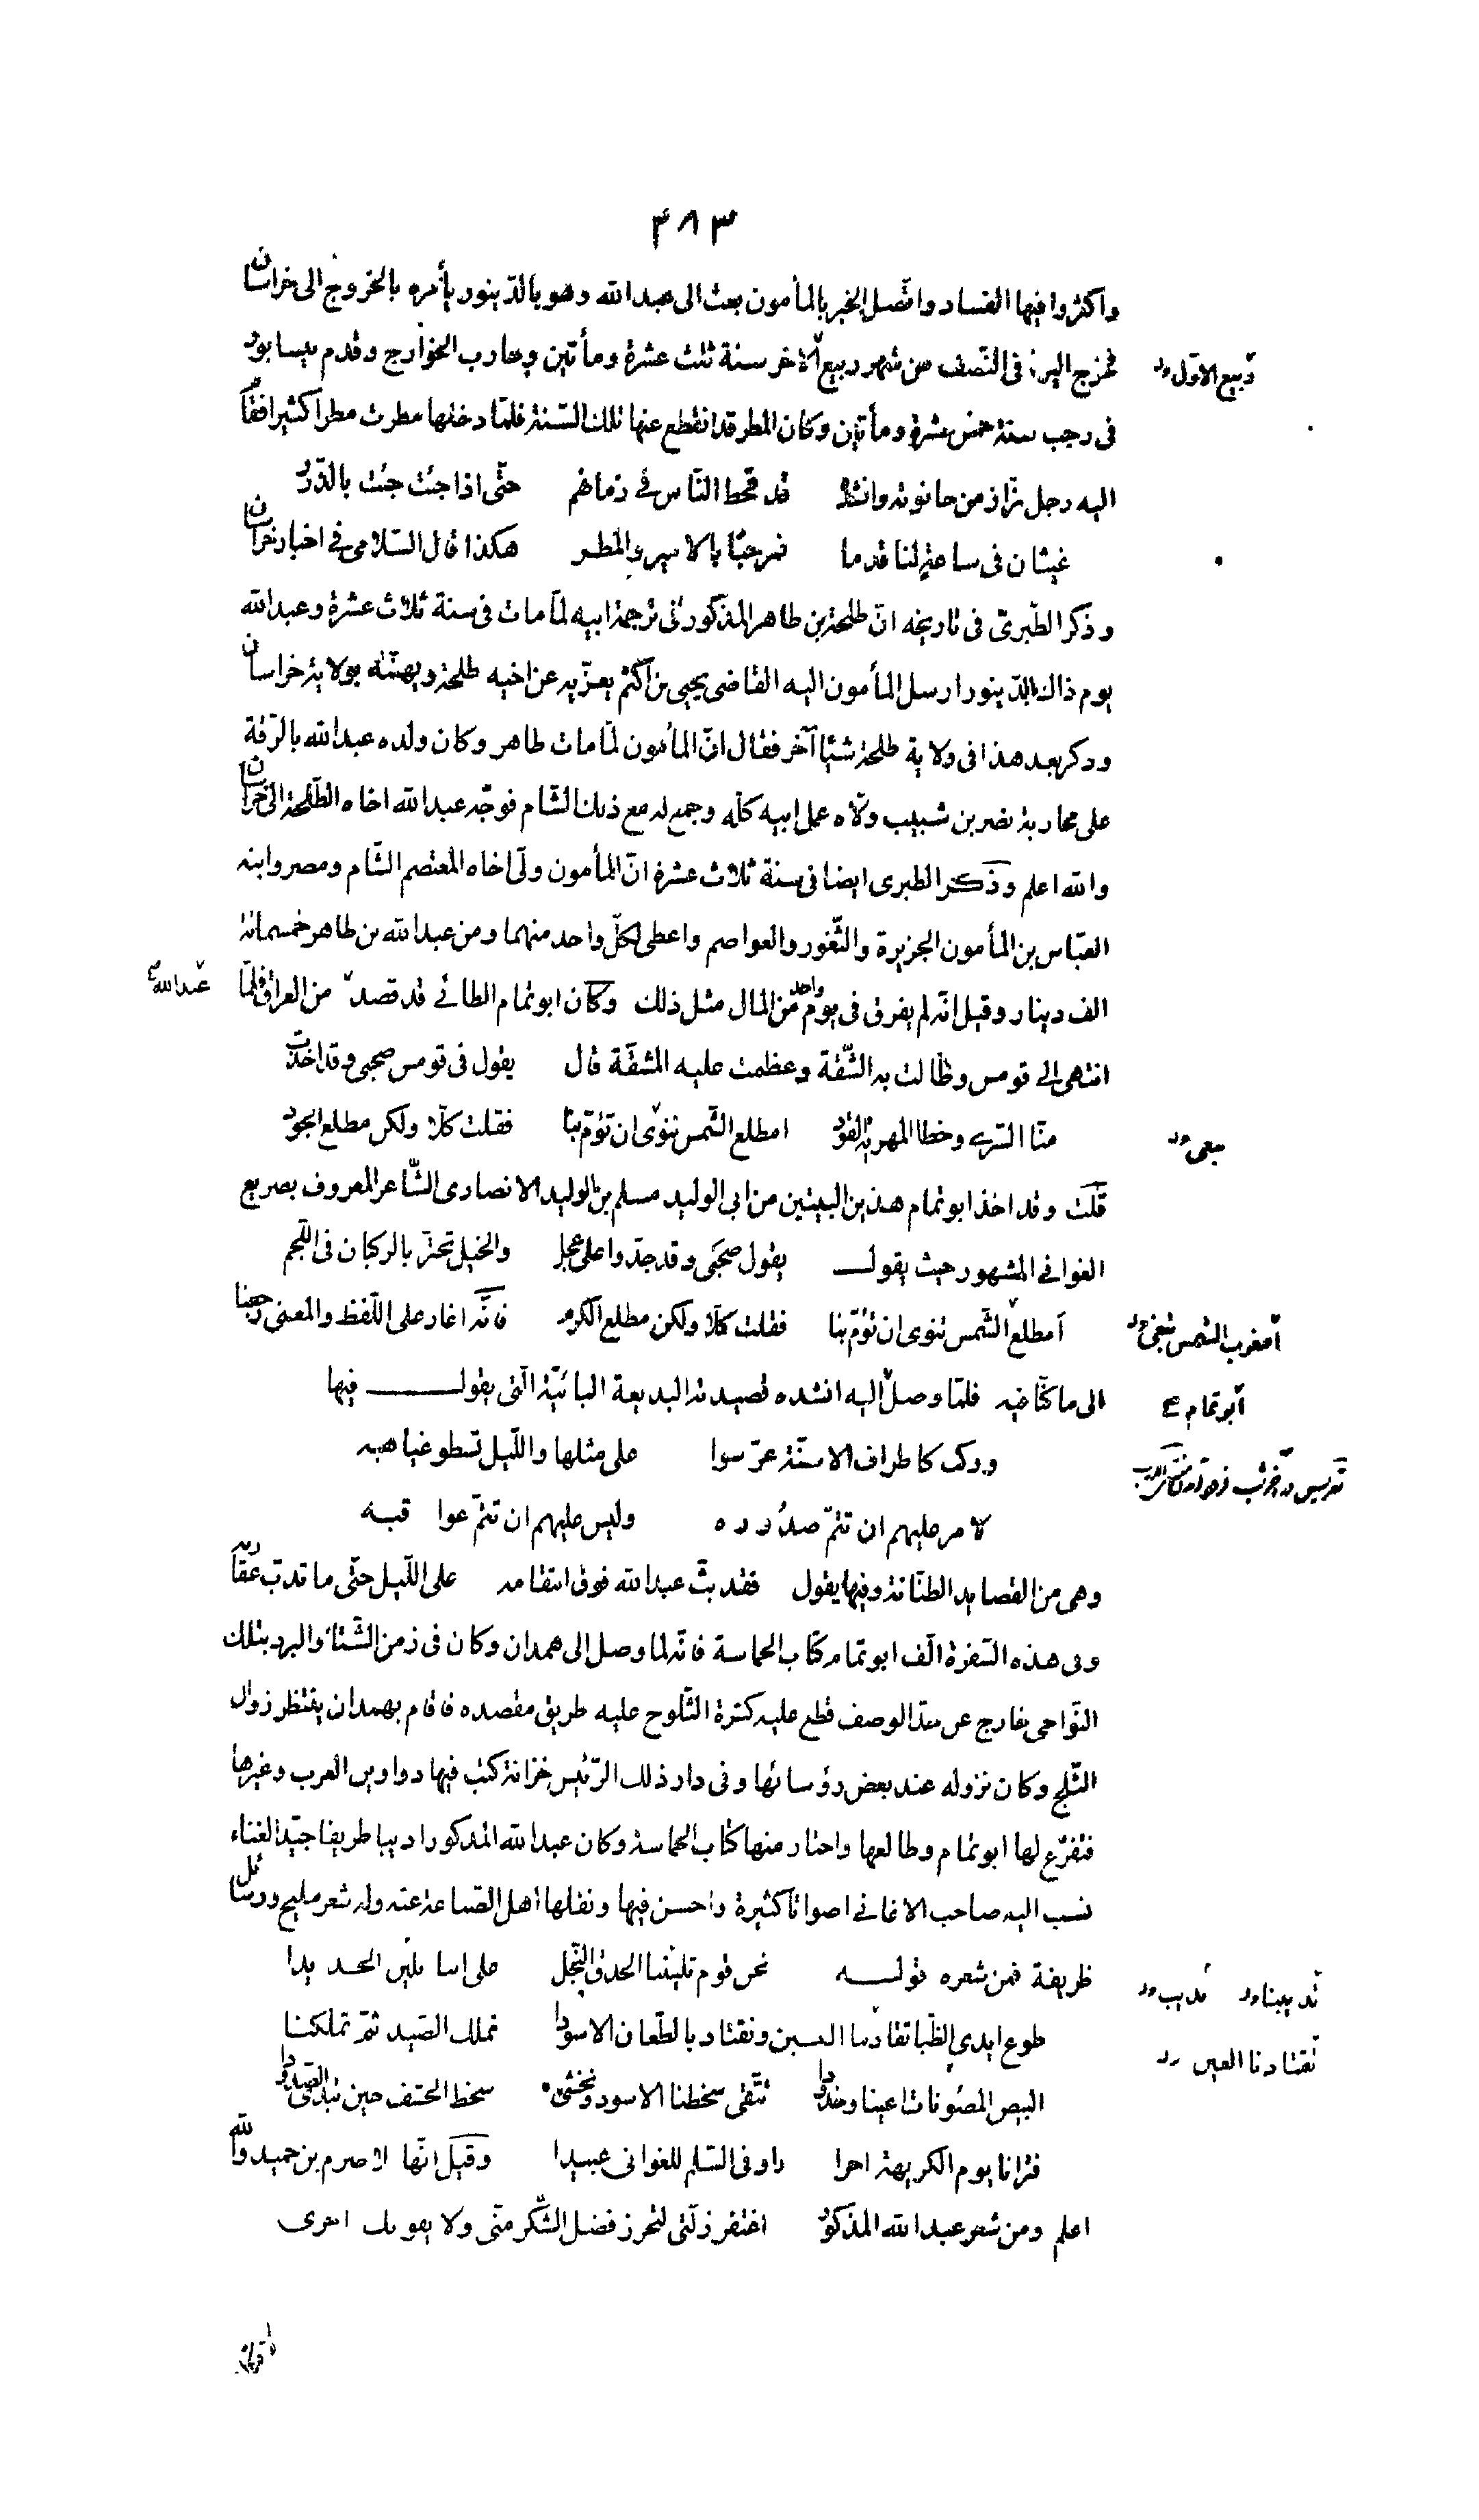 ٣٨٣
واكثروا فيها الفساد واتّصل الخبر بالمأمون بعث الى عبد الله وهو بالدّينور يأمره بالخروج الى خراسان
فخرج اليها فى النّصف من شهر ربيع الآخر سنة ثلث عشرة ومأتين وحارب الخوارج وقدم نيسابور
ربيع الاوّل
فى رجب سنة خمس عشرة ومأتين وكان المطر قد انقطع عنها تلك السّنة فلمّا دخلها مطرت مطراً كثيرا فقام
اليه رجل بزّاز من حانوته وانشد قد قحط النّاس فى زمانهم حتّى اذا جئت جئت بالدّرر
غيثان فى ساعة لنا قدما فمرحبًا بالامير والمطر هكذا قال السّلامى فى اخبار خراسان
وذكر الطّبرىّ فى تاريخه انّ طلحة بن طاهر المذكور فى ترجمة ابيه لمّا مات فى سنة ثلاث عشرة وعبد الله
يوم ذاك بالدّينور ارسل المأمون اليه القاضى يحيى بن اكثم يعزّيه عن اخيه طلحة ويهنّئه بولاية خراسان
وذكر بعد هذا فى ولاية طلحة شيئا آخر فقال انّ المأمون لمّا مات طاهر وكان ولده عبد الله بالرّقة
على محاربة نصر بن شبيب ولّاه عمل ابيه كلّه وجمع له مع ذلك الشّام فوجّه عبد الله اخاه الطّلحة الى خراسان
والله اعلم وذكر الطبرى ايضا فى سنة ثلاث عشرة انّ المأمون ولّى اخاه المعتصم الشّام ومصر وابنه
العبّاس بن المأمون الجزيرة والثّغور والعواصم واعطى لكلّ واحد منهما ومن عبد الله بن طاهر خمسمائة
الف دينار وقيل انّه لم يفرق فى يوم واحد من المال مثل ذلك وكان ابو تمام الطائى قد قصده من العراق فلمّا
عبد الله
انتهى الى قومس وطالت به الشّقّة وعظمت عليه المشقّة قال يقول فى قومس صحبى وقد اخذت
منّا السّرى وخطا المهريّة القود امطلع الشّمس تنوى ان تؤمّ بنا فقلت كلّا ولكن مطلع الجود
تبغى
قلت وقد اخذ ابو تمام هذين البيتين من ابى الوليد مسلم بن الوليد الانصارى الشّاعر المعروف بصريع
الغوانى المشهور حيث يقول يقول صحبى وقد جدّوا على عجل والخيل تجتزّ بالركبان فى اللّجم
أمطلع الشّمس تنوى ان تؤمّ بنا فقلت كلّا ولكن مطلع الكرم فانّه اغار على اللّفظ والمعنى رجعنا
أمغرب الشمس تبغى
الى ما كنّا فيه فلمّا وصل اليه انشده قصيدته البديعة البائيّة الّتى يقول فيها
أبو تمام
وركب كاطراف الاسنّة عرّسوا على مثلها واللّيل تسطو غياهبه
تعريس در آخر شب فرود آمدن
لامر عليهم ان تتمّ صدوره وليس عليهم ان تتمّ عواقبه
وهى من القصايد الطنّانة وفيها يقول فقد بثّ عبد الله فوق انتقامه على اللّيل حتّى ما تدبّ عقاربه
وفى هذه السّفرة الّف ابو تمام كتاب الحماسة فانّه لما وصل الى همدان وكان فى زمن الشّتاء والبرد بتلك
النّواحى خارج عن حدّ الوصف قطع عليه كثرة الثّلوج عليه طريق مقصده فاقام بهمدان ينتظر زوال
الثّلج وكان نزوله عند بعض رؤسائها وفى دار ذلك الرّئيس خزانة كتب فيها دواوين العرب وغيرها
فتفرّغ لها ابو تمام وطالعها واختار منها كتاب الحماسة وكان عبد الله المذكور اديبا ظريفا جيّد الغناء
نسب اليه صاحب الاغانى اصواتا كثيرة واحسن فيها ونقلها اهل الصّناعة عنه وله شعر مليح ورسائل
ظريفة فمن شعره قوله نحن قوم تليننا الحدق النّجل على اننا نلين الحديدا
تذيبنا نذيب
طوع ايدى الظّبا تقادنا العين ونقتاد بالطّعان الاسودا نملك الصّيد ثمّ تملكنا
تقتادنا العين
البيض المصونات اعينا وخدودا تتّقى سخطنا الاسود ونخشى سخط الخشف حين تبدى الصّدودا
فترانا يوم الكريهة احرارا وفى السّلم للغوانى عبيدا وقيل انّها لاصرم بن حميد والله
اعلم ومن شعر عبد الله المذكور اغتفر زلّتى لتحرز فضل الشّكر منّى ولا يفوتك اجرى